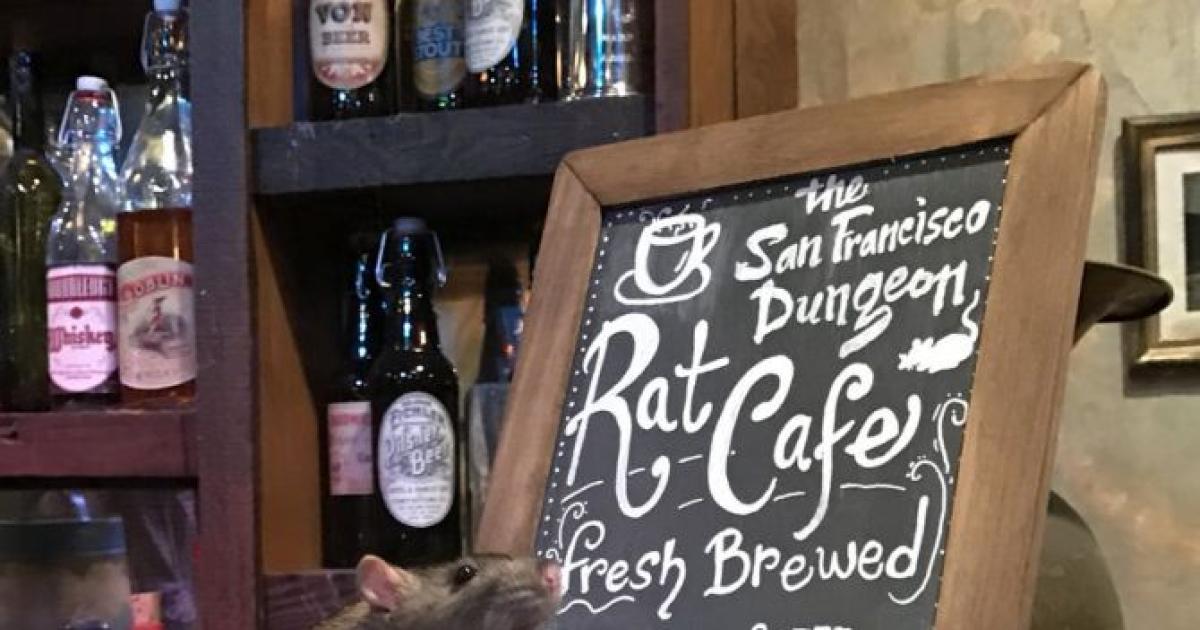 VON
BEER
BEST
STOUT
Whiskey
the
San Francisco
Dungeon
Rat
Cafe
fresh Brewed